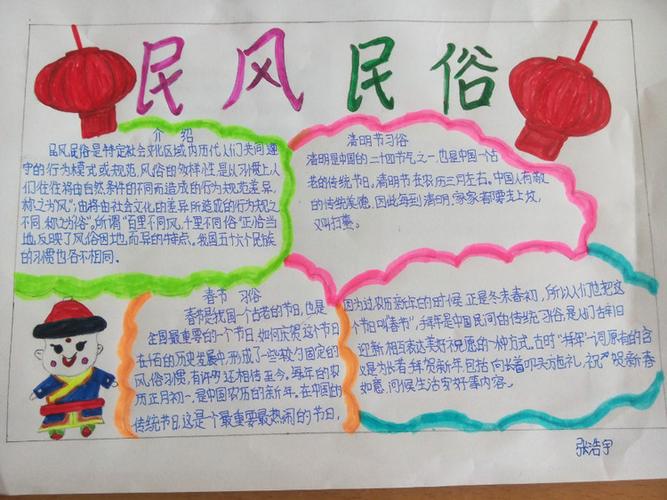 民风民俗
介绍
民风民俗是特定社会文化区域内历代人们共同遵
守的行为模式或规范。风俗的多样性,是以习惯上人
们往往将由自然条件的不同而造成的行为规范差异,
称之为"风";由将由社会文化的差异所造成的行为规之
不同,称之为"俗"。所谓"百里不同风,千里不同俗"正恰当
地反映了风俗因地而异的特点。我国五十六个民族
的习惯也各不相同.
清明节习俗
清明是中国的二十四节气之一,也是中国一个古
老的传统节日,清明节在农历三月左右。中国人有敬
的传统美德,因此每到清明,家家都要去上坟,
又叫扫墓。
春节 习俗
春节是我国一个古老的节日,也是
全国最重要的一个节日,如何庆贺这个节日
在千百的历史发展中,形成了一些较为固定的
风俗习惯,有许多还相传至今。每年的农
历正月初一,是中国农历的新年。在中国的
传统节日,这是个最重要最热闹的节日,
因为过农历新年的时候 正是冬末春初,所以人们也把这
个节日叫"春节",拜年是中国民间的传统习俗,是人们辞旧
迎新.相互表达美好祝愿的一种方式。古时"拜年"一词原有的含
义是为长者拜贺新年,包括向长者叩头施礼,祝"贺新春
如意,问候生活安好等内容。
张浩宇